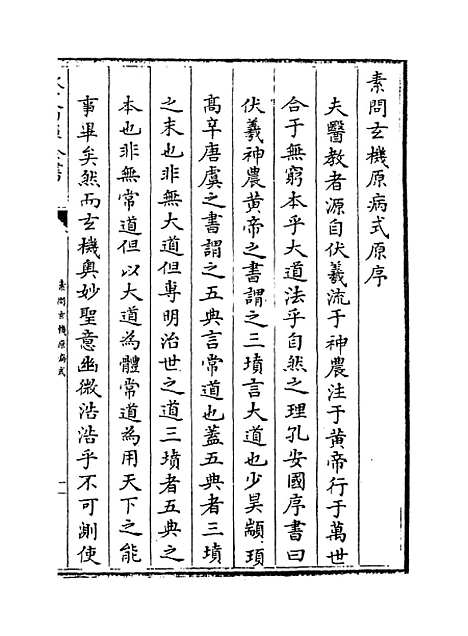 素問玄機原病式原序
夫醫教者源自伏羲流于神農注于黄帝行于萬世
合于無窮本乎大道法乎自然之理孔安國序書曰
伏羲神農黄帝之書謂之三墳言大道也少昊顓頊
髙辛唐虞之書謂之五典言常道也蓋五典者三墳
之末也非無大道但專明治世之道三墳者五典之
本也非無常道但以大道為體常道為用天下之能
事畢矣然而玄機奥妙聖意幽微浩浩乎不可測使
素問玄機原病式